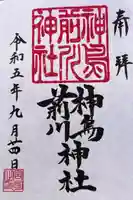 奉拝
神鳥
前川
神社
神鳥前川神社
令和五年九月廿四日